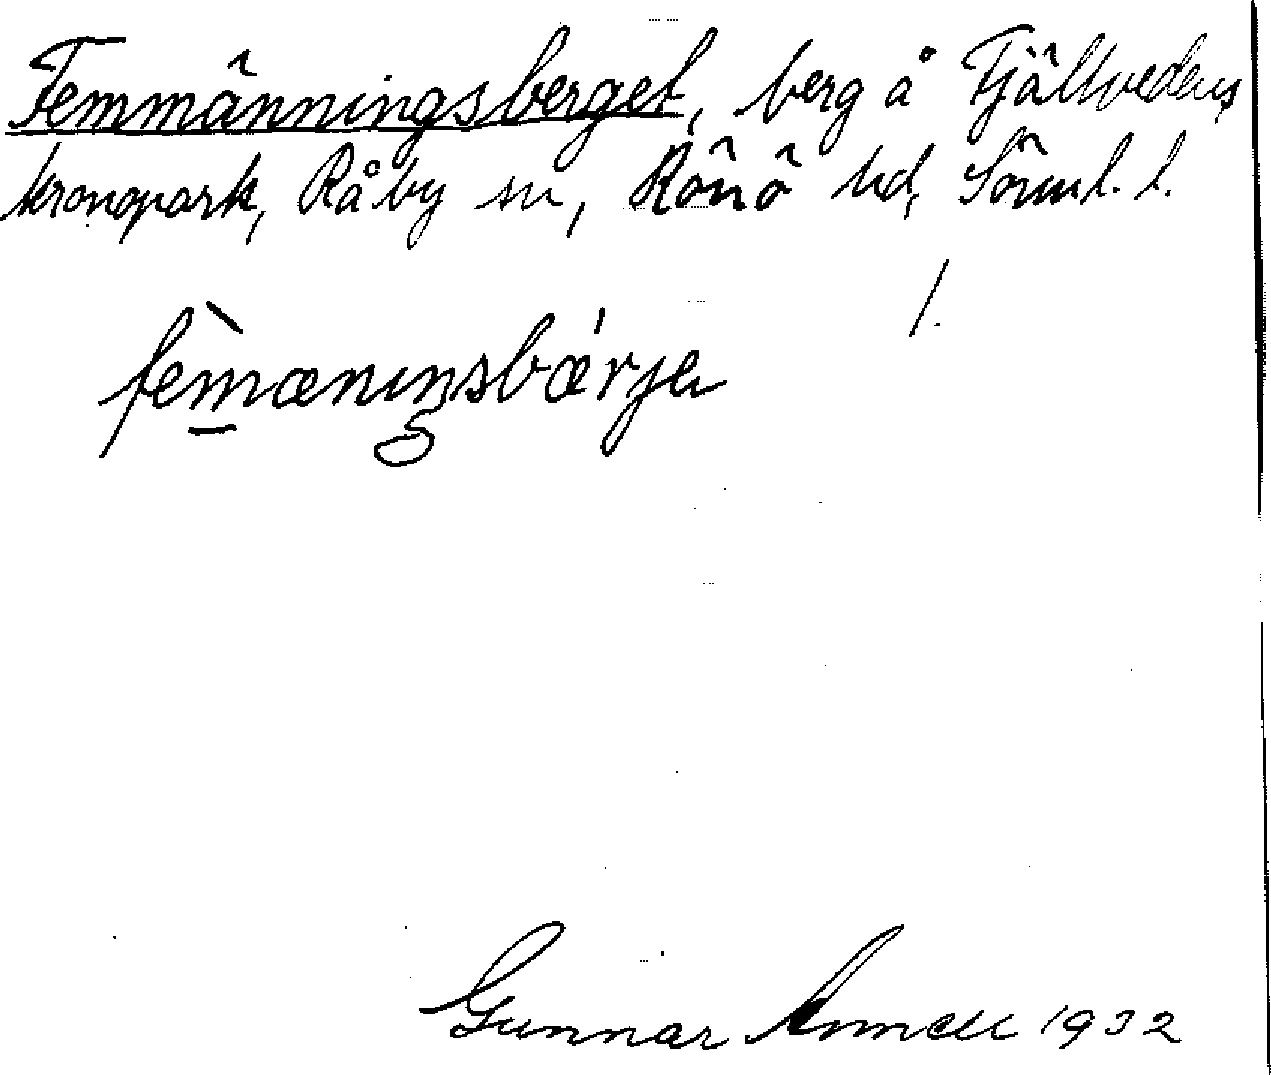 Femmänningsberget, berg å Fjällvedens
kronopark, Råby sn, Rönö hd, Sörml. l.
/.
fèm̱æniŋsbæ'rjeₙ
Gunnar Annell 1932